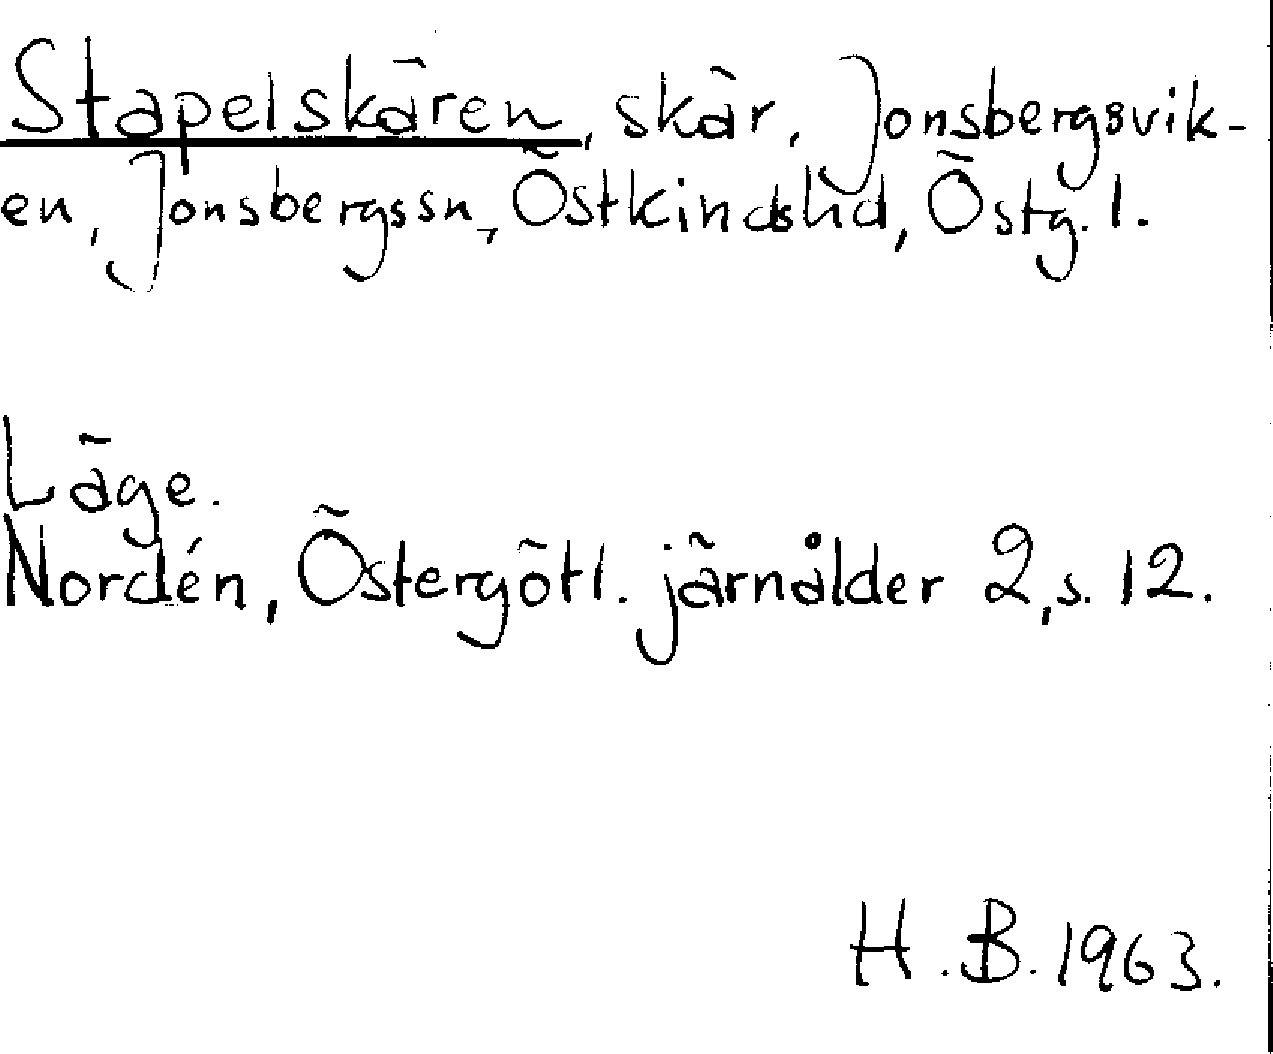 Stapelskären, skär, Jonsbergsvik-
en, Jonsbergssn, Östkindshd, Östg. l.
Läge.
Nordén, Östergötl. järnålder 2, s. 12.
H.B. 1963.